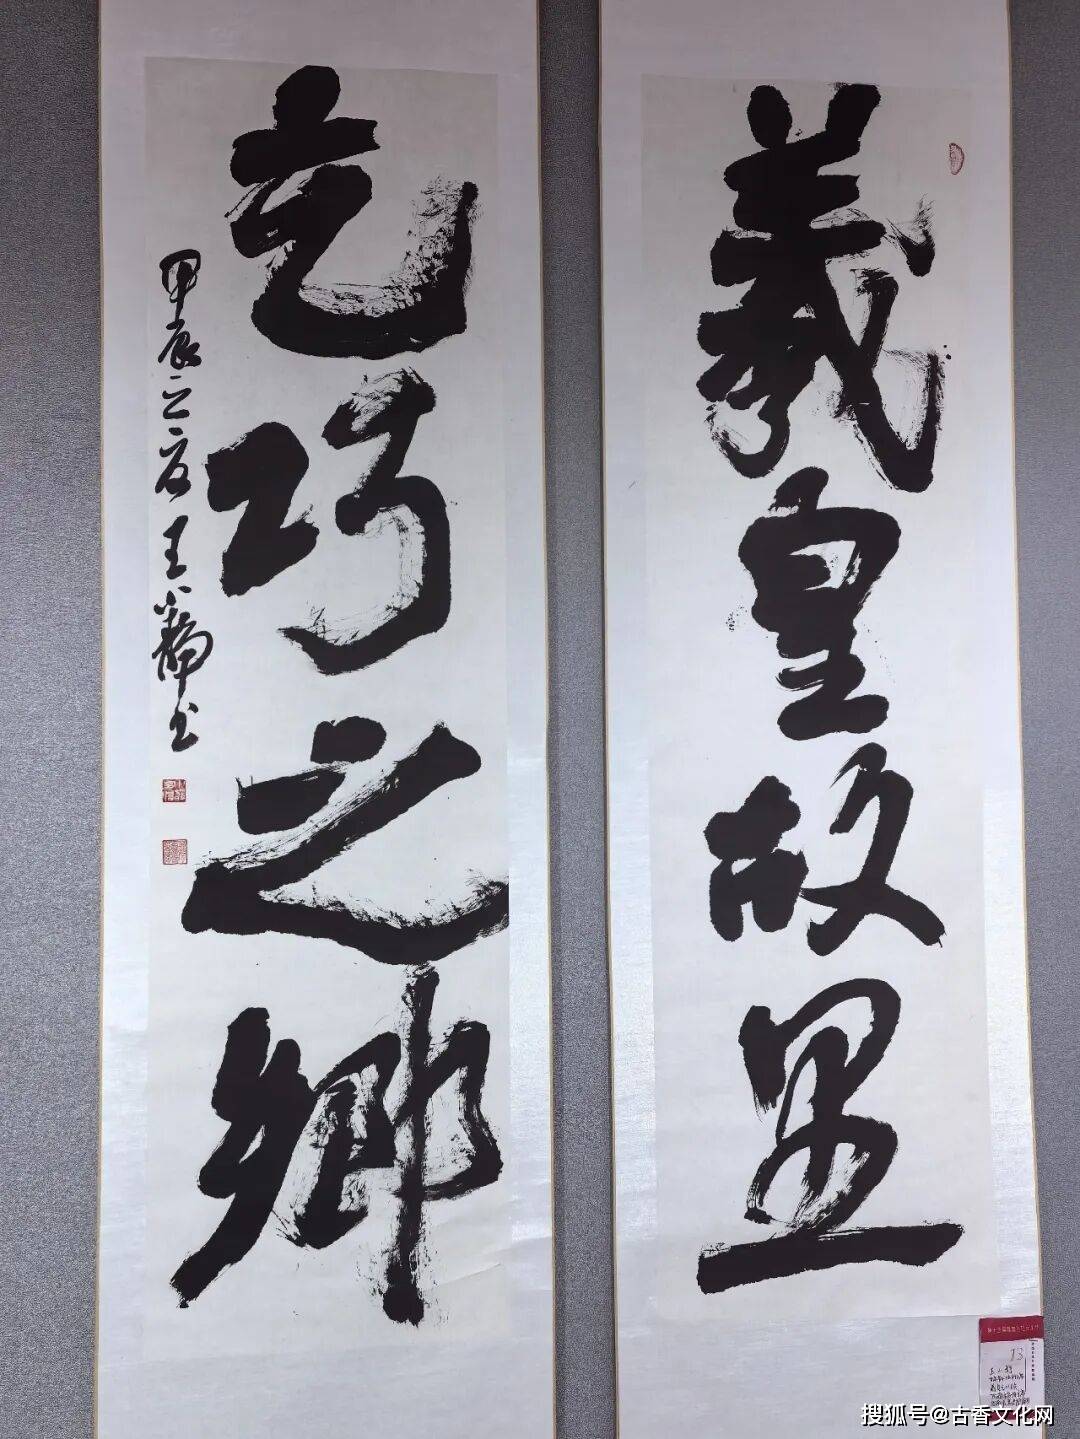 羲皇故里
乞巧之乡
甲辰之夏王小静书
13
搜狐号@古香文化网